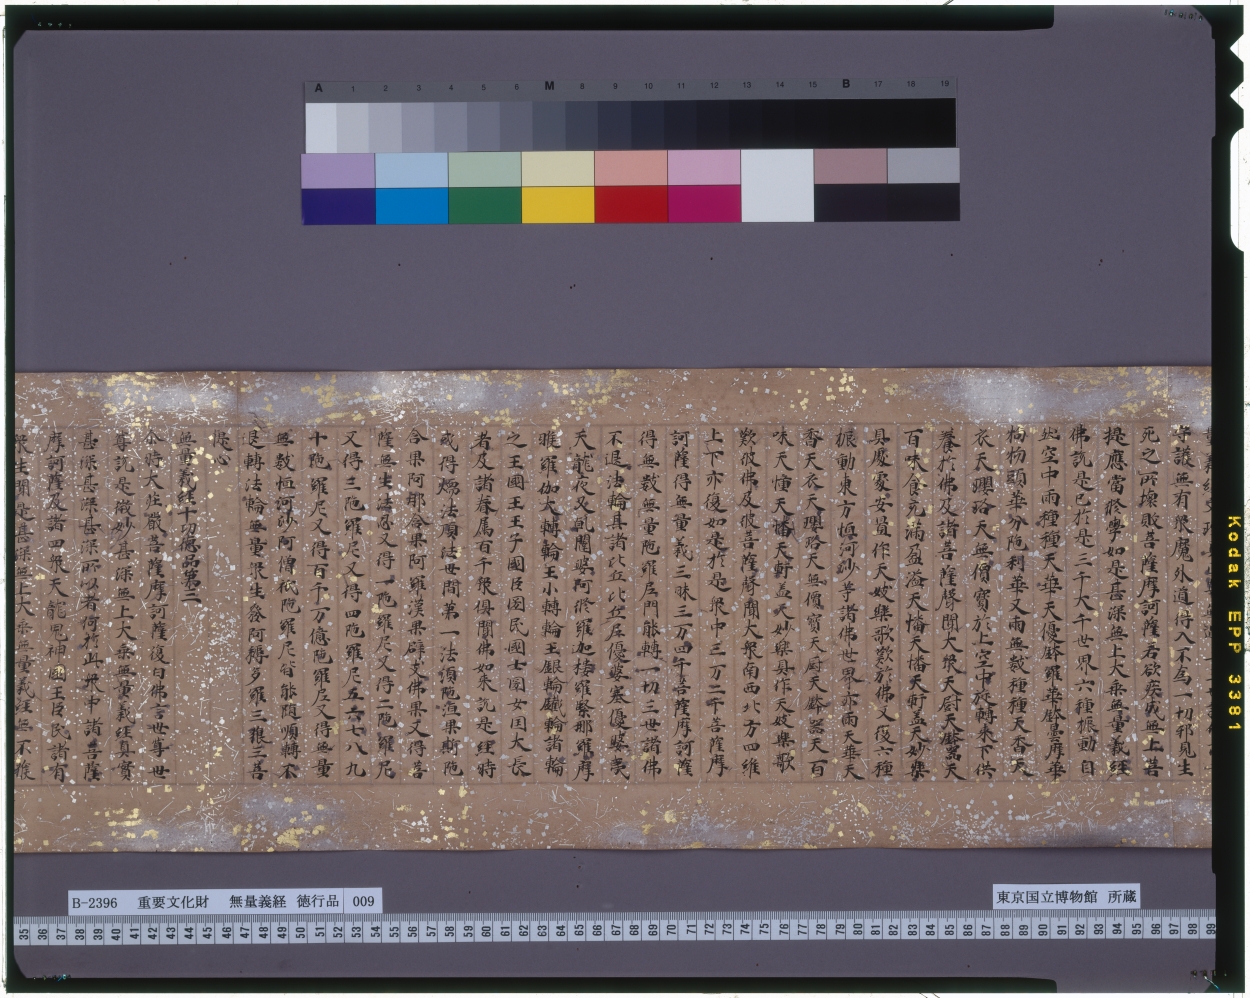 守護無有衆魔外道得入不為一切邪見生
死之所壞敗菩薩摩訶薩若欲疾成無上菩
提應當修學如是甚深無上大乘無量義經
佛說是已於是三千大千世界六種振動自
然空中雨種種天華天優鉢羅華鉢曇摩華
拘物頭華分陁利華又雨無數種種天香天
衣天瓔珞天無價寶於上空中旋轉來下供
養於佛及諸菩薩聲聞大衆天厨天鉢器天
百味食充滿盈溢天幢天幡天軒盖天妙樂
具處處安置作天妓樂歌歎於佛又復六種
振動東方恒河沙等諸佛世界亦雨天華天
香天衣天瓔珞天無價寶天厨天鉢器天百
味天幢天幡天軒盖天妙樂具作天妓樂歌
歎彼佛及彼菩薩聲聞大衆南西北方四維
上下亦復如是於是衆中三万二千菩薩摩
訶薩得無量義三昧三万四千菩薩摩訶薩
得無數無量陁羅尼門能轉一切三世諸佛
不退法輪其諸比丘比丘尼優婆塞優婆夷
天龍夜叉乹闥婆阿修羅迦樓羅緊那羅摩
睺羅伽大轉輪王小轉輪王銀輪鐵輪諸輪
之王國王王子國臣國民國士國女國大長
者及諸眷属百千衆俱聞佛如來說是經時
或得煗法頂法世間第一法須陁洹果斯陁
含果阿那含果阿羅漢果辟支佛果又得菩
薩無生法忍又得一陁羅尼又得二陁羅尼
又得三陁羅尼又得四陁羅尼五六七八九
十陁羅尼又得百千万億陁羅尼又得無量
無數恒河沙阿僧祇陁羅尼皆能随順轉不
退轉法輪無量衆生發阿耨多羅三藐三菩
提心
無量義經十功德品第三
尒時大莊嚴菩薩摩訶薩復白佛言世尊世
尊說是微妙甚深無上大乘無量義經真實
甚深甚深甚深所以者何於此衆中諸菩薩
摩訶薩及諸四衆天龍鬼神國王臣民諸有
衆生聞是甚深無上大乘無量義經無不獲
B-2396 重要文化財 無量義経 徳行品 009
東京国立博物館 所蔵
Kodak EPP 3381